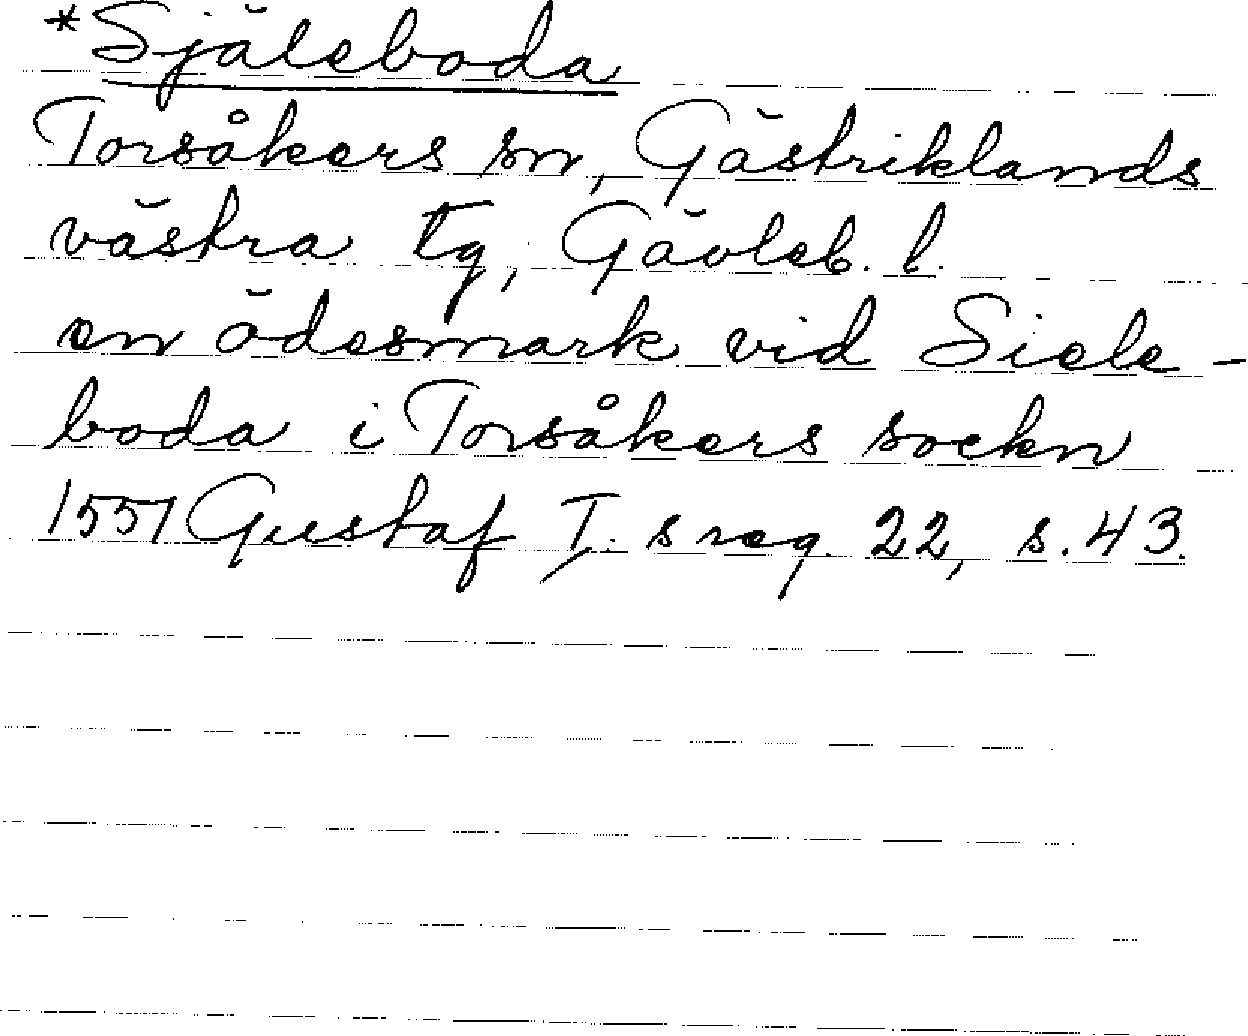 *Själeboda
Torsåkers sn, Gästriklands
västra tg, Gävleb. l.
en ödesmark vid Siele-
boda i Torsåkers sockn
1551 Gustaf I:s reg. 22, s. 43.